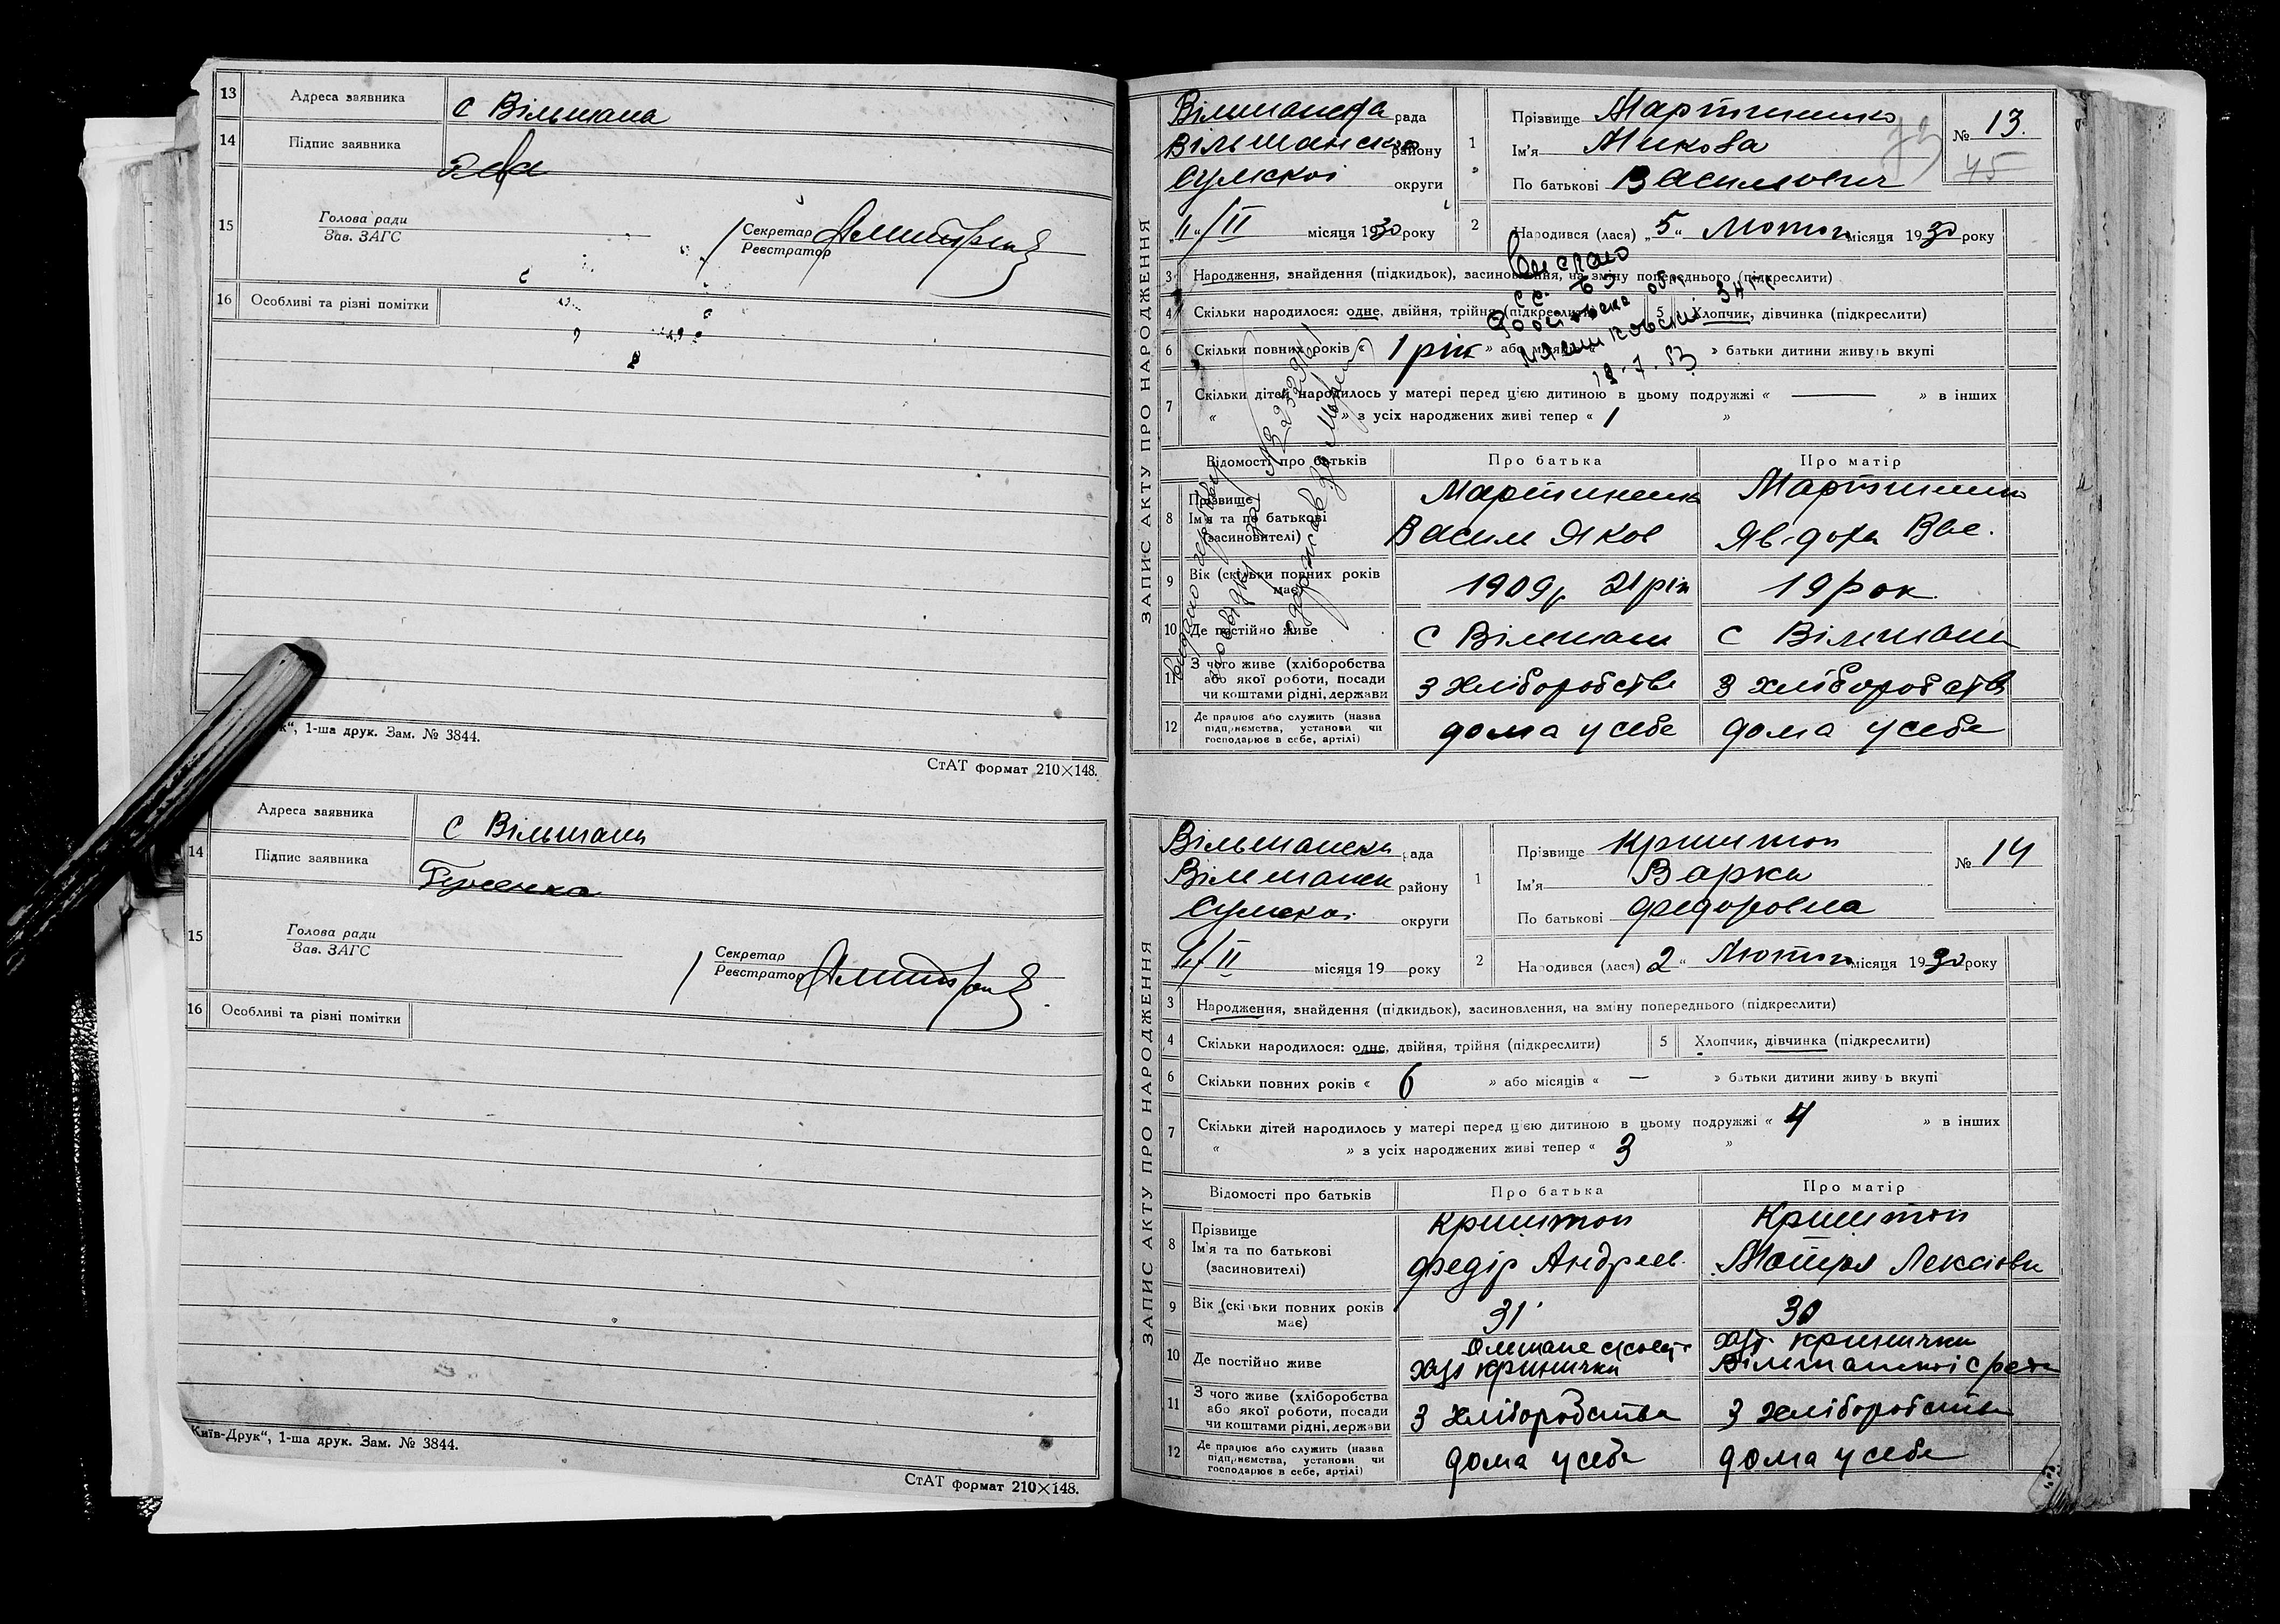 13 Адреса заявника с Вільшана
14 Підпис заявника
15 Голова ради
Зав. ЗАГС
Секретар
Реєстратор
16 Особливі та різні помітки
к“, 1-ша друк. Зам. № 3844.
СтАТ формат 210×148.
Адреса заявника с Вільшани
14 Підпис заявника
15 Голова ради
Зав. ЗАГС
Секретар
Реєстратор
16 Особливі та різні помітки
Київ-Друк“, 1-ша друк. Зам. № 3844.
СтАТ формат 210×148.
ЗАПИС АКТУ ПРО НАРОДЖЕННЯ
Вільшанська рада
Вільшанского району
Сумскоі округи
„11“/II місяця 1930 року
1 Прізвище Мартиненко
Ім'я Микола
По батькові Василович
№ 13.
45
73
2 Народився (лася) „5“ Лютого місяця 1930 року
3 Народження, знайдення (підкидьок), засиновлення, на зміну попереднього (підкреслити)
4 Скільки народилося: одне, двійня, трійня (підкреслити) 5 Хлопчик, дівчинка (підкреслити)
6 Скільки повних років « 1 рік » або місяців « » батьки дитини живуть вкупі
12.7.53
7 Скільки дітей народилось у матері перед цією дитиною в цьому подружжі « — » в інших
« » з усіх народжених живі тепер « 1 »
Відомості про батьків Про батька Про матір
8 Прізвище Ім'я та по батькові (засновителі)
Мартиненко Мартиненко
Васил Яков Явдоха Вас.
9 Вік (скільки повних років має) 1909р 21 рік 19 рок
10 Де постійно живе с Вілшани с Вілшани
11 З чого живе (хліборобства або якої роботи, посади чи коштами рідні, держави З хліборобства З хліборобства
12 Де працює або служить (назва підприємства, установи чи господарює в себе, артілі) дома у себе дома у себе
ЗАПИС АКТУ ПРО НАРОДЖЕННЯ
Вільшанська рада
Вілшанск району
Сумскоі округи
11/II місяця 19 — року
1 Прізвище Криштоп
Ім'я Варка
По батькові Федоровна
№ 14
2 Народився (лася) 2“ Лютого місяця 1930 року
3 Народження, знайдення (підкидьок), засиновлення, на зміну попереднього (підкреслити)
4 Скільки народилося: одне, двійня, трійня (підкреслити) 5 Хлопчик, дівчинка (підкреслити)
6 Скільки повних років « 6 » або місяців « — » батьки дитини живуть вкупі
7 Скільки дітей народилось у матері перед цією дитиною в цьому подружжі « 4 » в інших
« » з усіх народжених живі тепер « 3 »
Відомості про батьків Про батька Про матір
8 Прізвище Ім'я та по батькові (засиновителі)
Криштоп Криштоп
Федір Андреев. Мотря Лексіовн
9 Вік (скільки повних років має) 31 30
10 Де постійно живе
хут Кринички хут. Кринички
11 З чого живе (хліборобства або якої роботи, посади чи коштами рідні, держави З хліборобства З хліборобства
12 Де працює або служить (назва підприємства, установи чи господарює в себе, артілі) дома у себе дома у себе